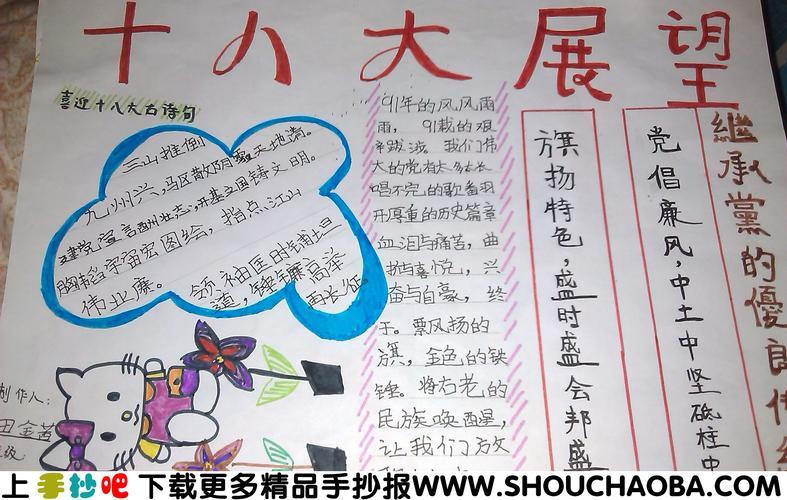 十八大展望
喜迎十八大古诗句
三山推倒
九州兴,冯区散阴霾天地清。
建党宣言酬壮志,开基立国铸文明。
胸韬宇宙宏图绘,指点江山
伟业赓。 领袖匡时铺坦
道,锤镰高举
再长征
91年的风风雨
雨, 91载的艰
辛跋涉 我们伟
大的党有太多太长
唱不完的歌番羽
开厚重的历史篇章
血泪与痛苦,曲
折与喜悦,兴
奋与自豪, 终
于。飘扬的
旗,金色的铁
锤。将古老的
民族唤醒,
让我们放
旗扬特色,盛时盛会邦盛
党倡廉风,中土中坚砥柱中
继承黨的優良传
制作人:
田金茜
班级:
上手抄吧 下载更多精品手抄报WWW.SHOUCHAOBA.COM